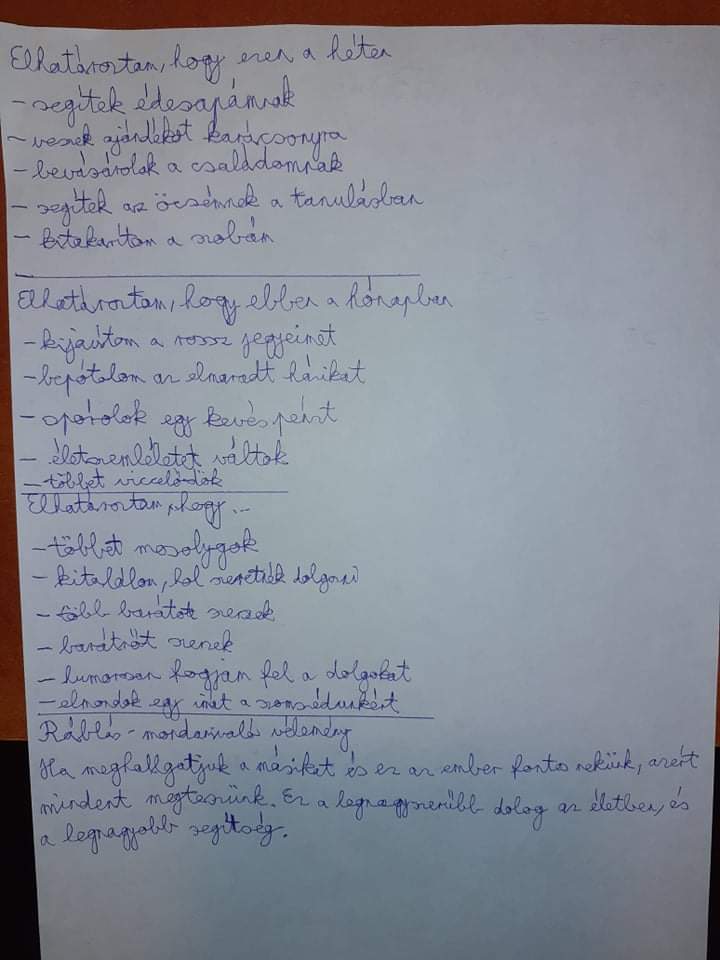 Elhatároztam, hogy ezen a héten
- segítek édesapámnak
- veszek ajándékot karácsonyra
- bevásárolok a családomnak
- segítek az öcsémnek a tanulásban
- kitakarítom a szobám
Elhatároztam, hogy ebben a hónapban
- kijavítom a rossz jegyeimet
- bepótolom az elmaradt házikat
- spórolok egy kevés pénzt
- életszemléletet váltok
- többet viccelődök
Elhatároztam, hogy...
- többet mosolygok
- kitalálom, hol szeretnék dolgozni
- több barátot szerzek
- barátnőt szerzek
- humorosan fogjam fel a dolgokat
- elmondok egy imát a szomszédunkért
- mondanivaló vélemény
Ha meghallgatjuk a másikat és ez az ember fontos nekünk, azért
mindent megteszünk. Ez a legnagyszerűbb dolog az életben, és
a legnagyobb segítség.